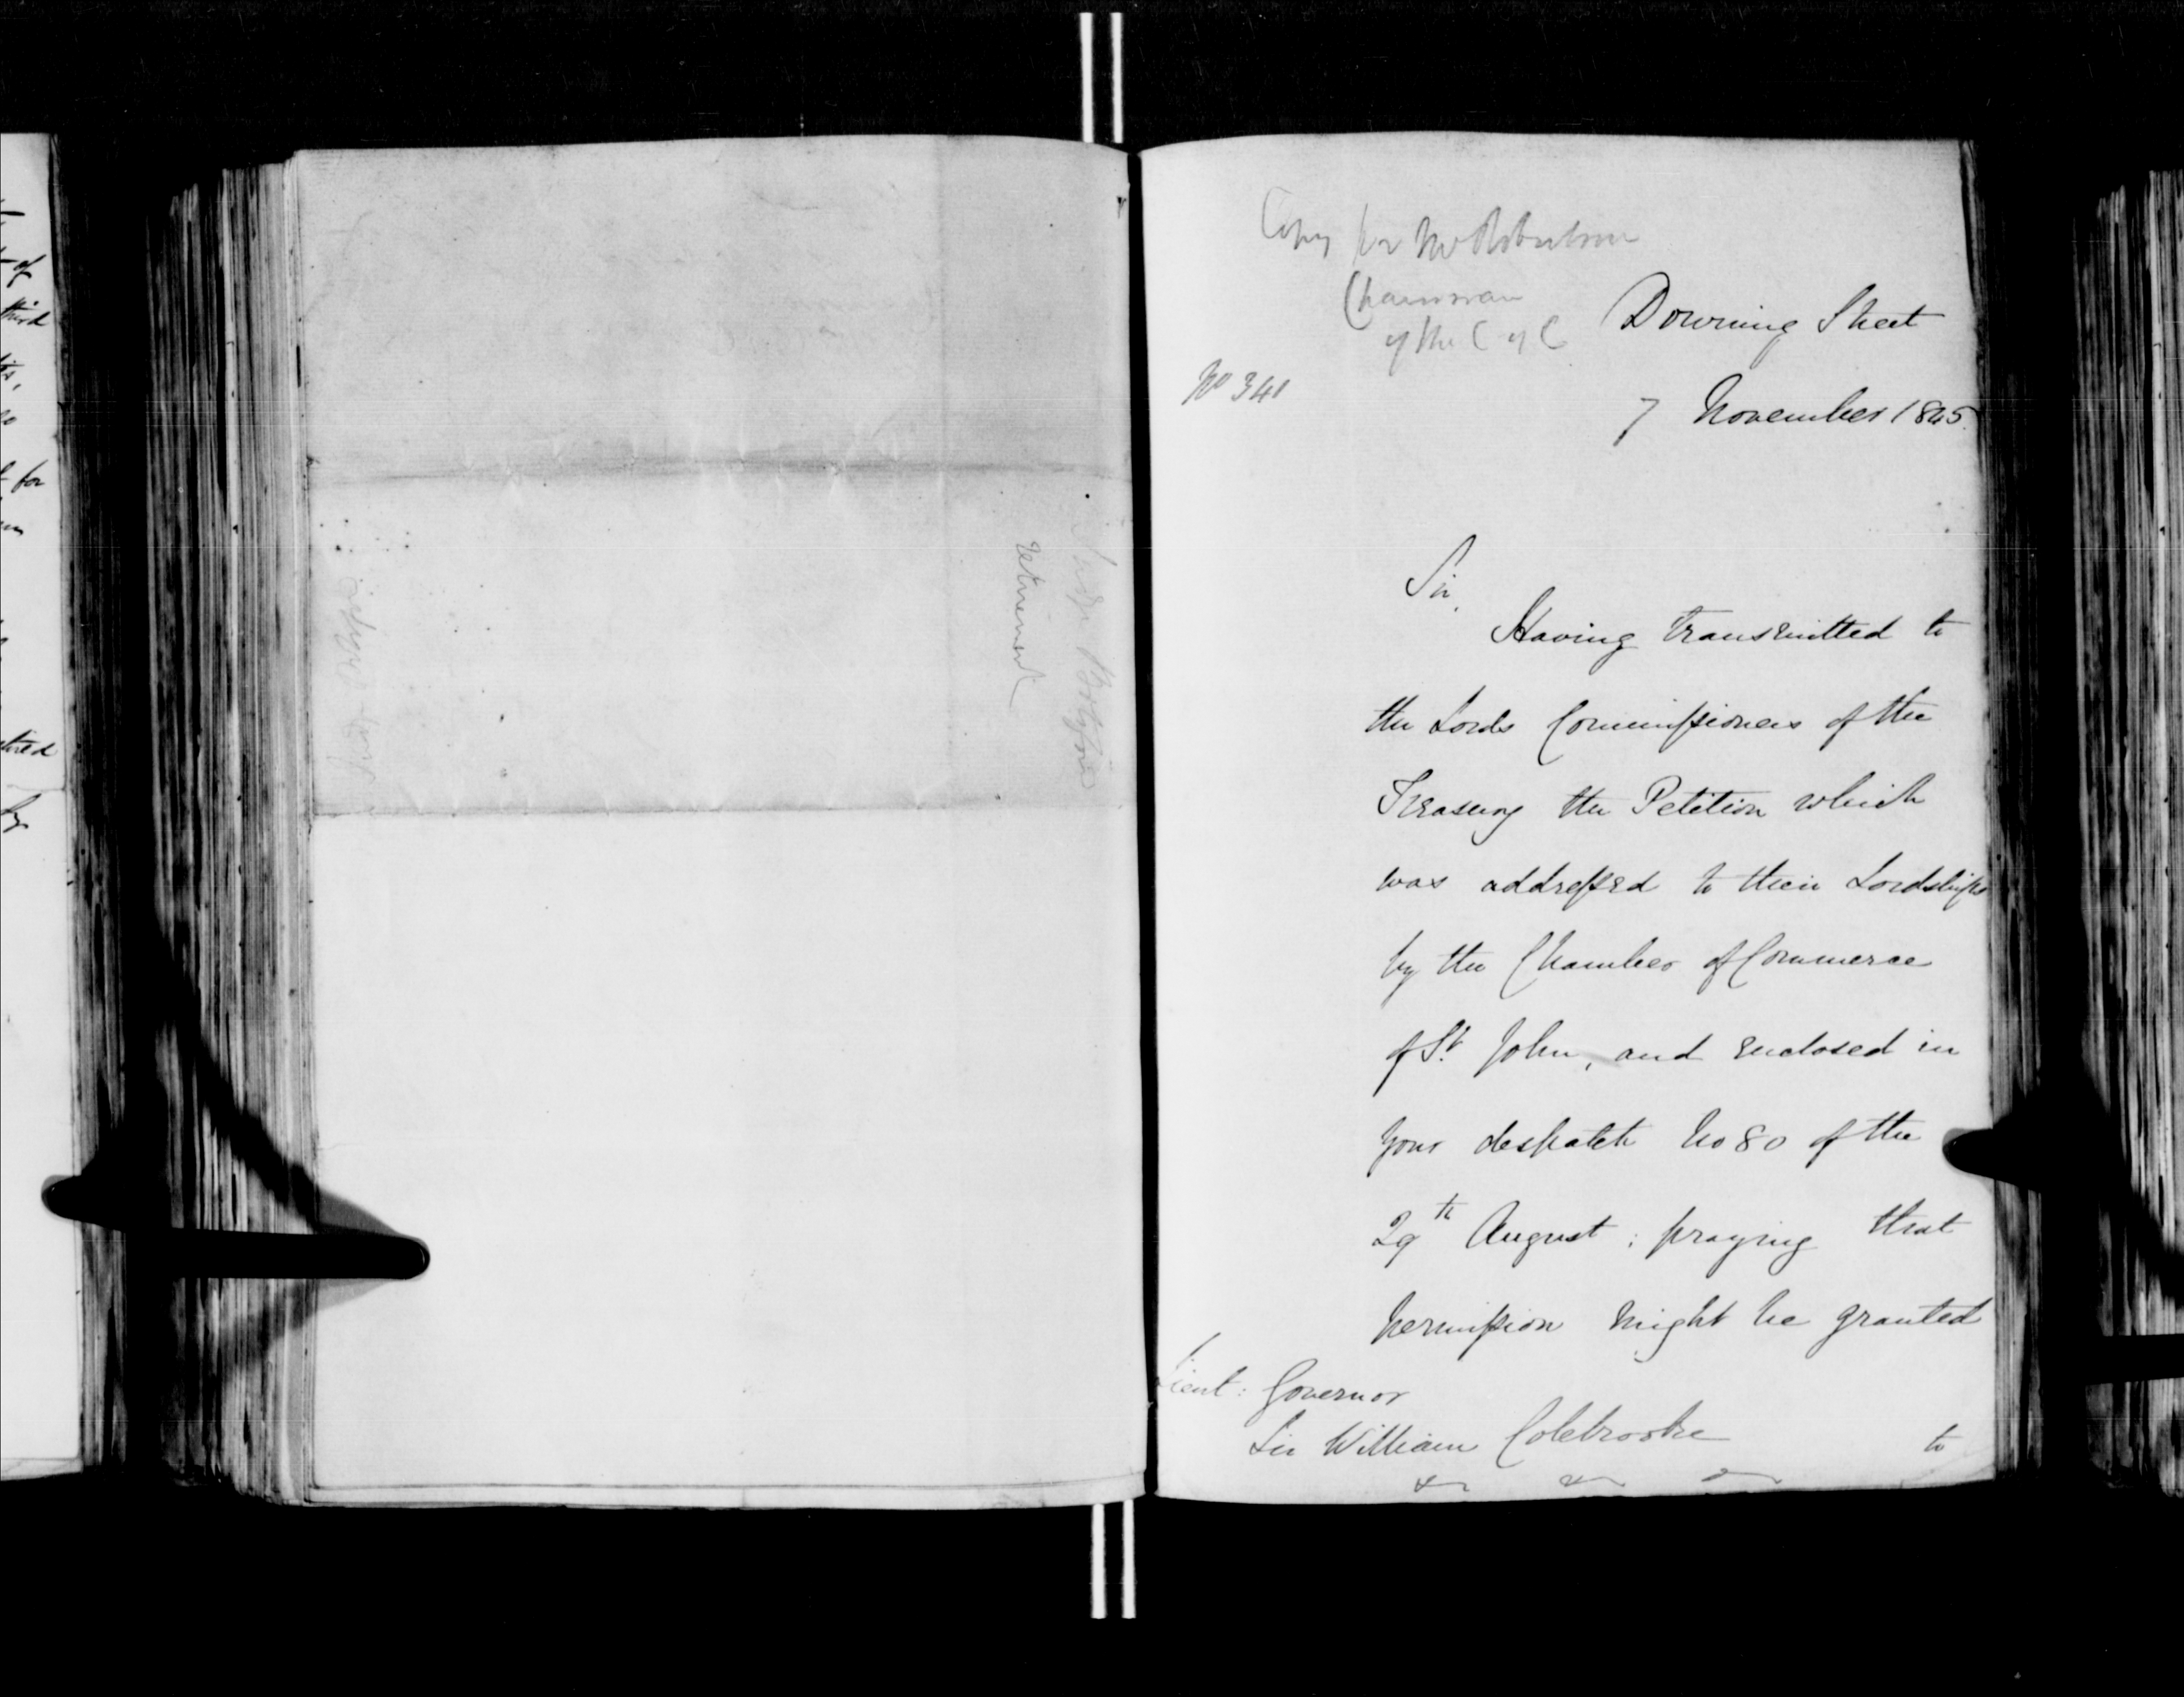 Judge Botsford
retirement
Copy for Mr Robertson
Chairman
of the C of C
Downing Street
No 341
7 November 1845.
Sir,
Having transmitted to
the Lords Commissioners of the
Treasury the Petition which
was addressed to their Lordships
by the Chamber of Commerce
of St. John, and enclosed in
your despatch No 80 of the
29th August; praying that
permission might be granted
Lieut: Governor
Sir William Colebrooke
to
of
third
for
by